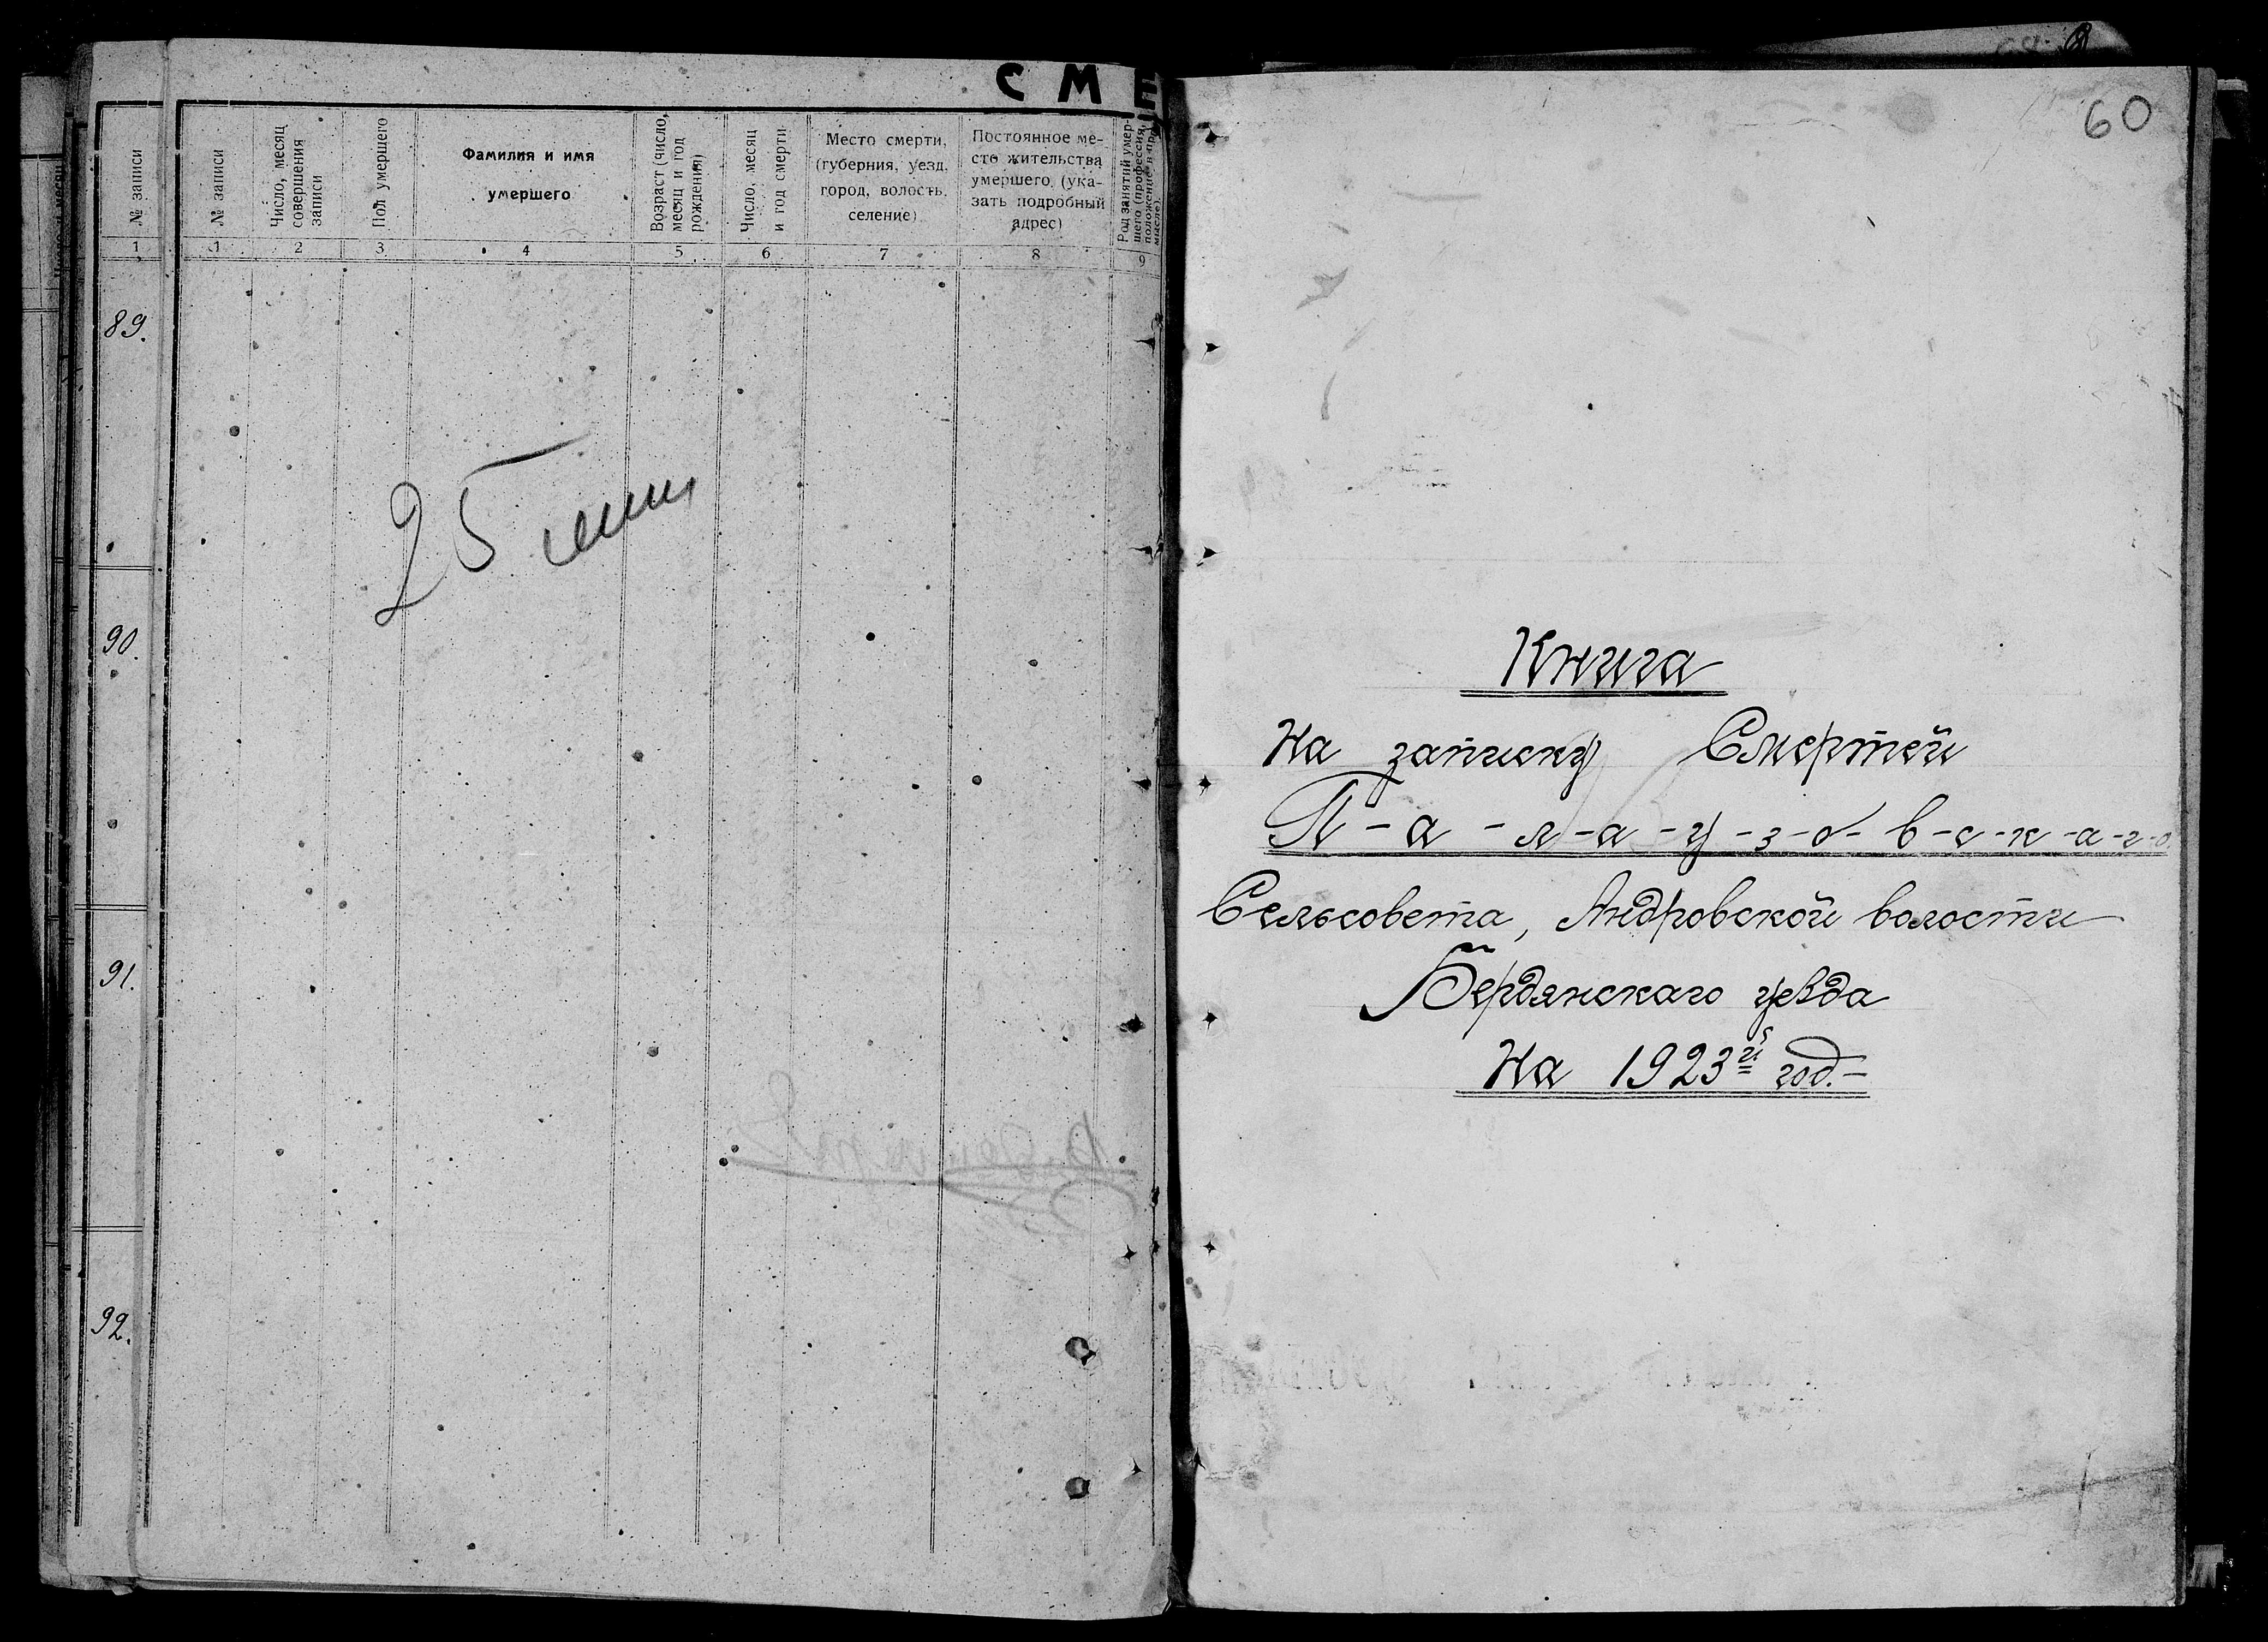 С М Е
№ записи
№ записи
Число, месяц
совершения
записи
Пол умершего
Фамилия и имя
умершего
Возраст (число,
месяц и год
рождения)
Число, месяц
и год смерти
Место смерти,
(губерния, уезд,
город, волость,
селение)
Постоянное ме-
сто жительства
умершего, (ука-
зать подробный
адрес)
Род занятий умер-
шего (профессия,
положение в про-
мысле).
1
1 2 3 4 5 6 7 8 9
89.
90.
91.
92.
25
60
Книга
На записку Смертей
П-а-л-а-у-з-о-в-с-к-а-г-о
Сельсовета, Андровской волости
Бердянскаго уезда
На 1923й год.-